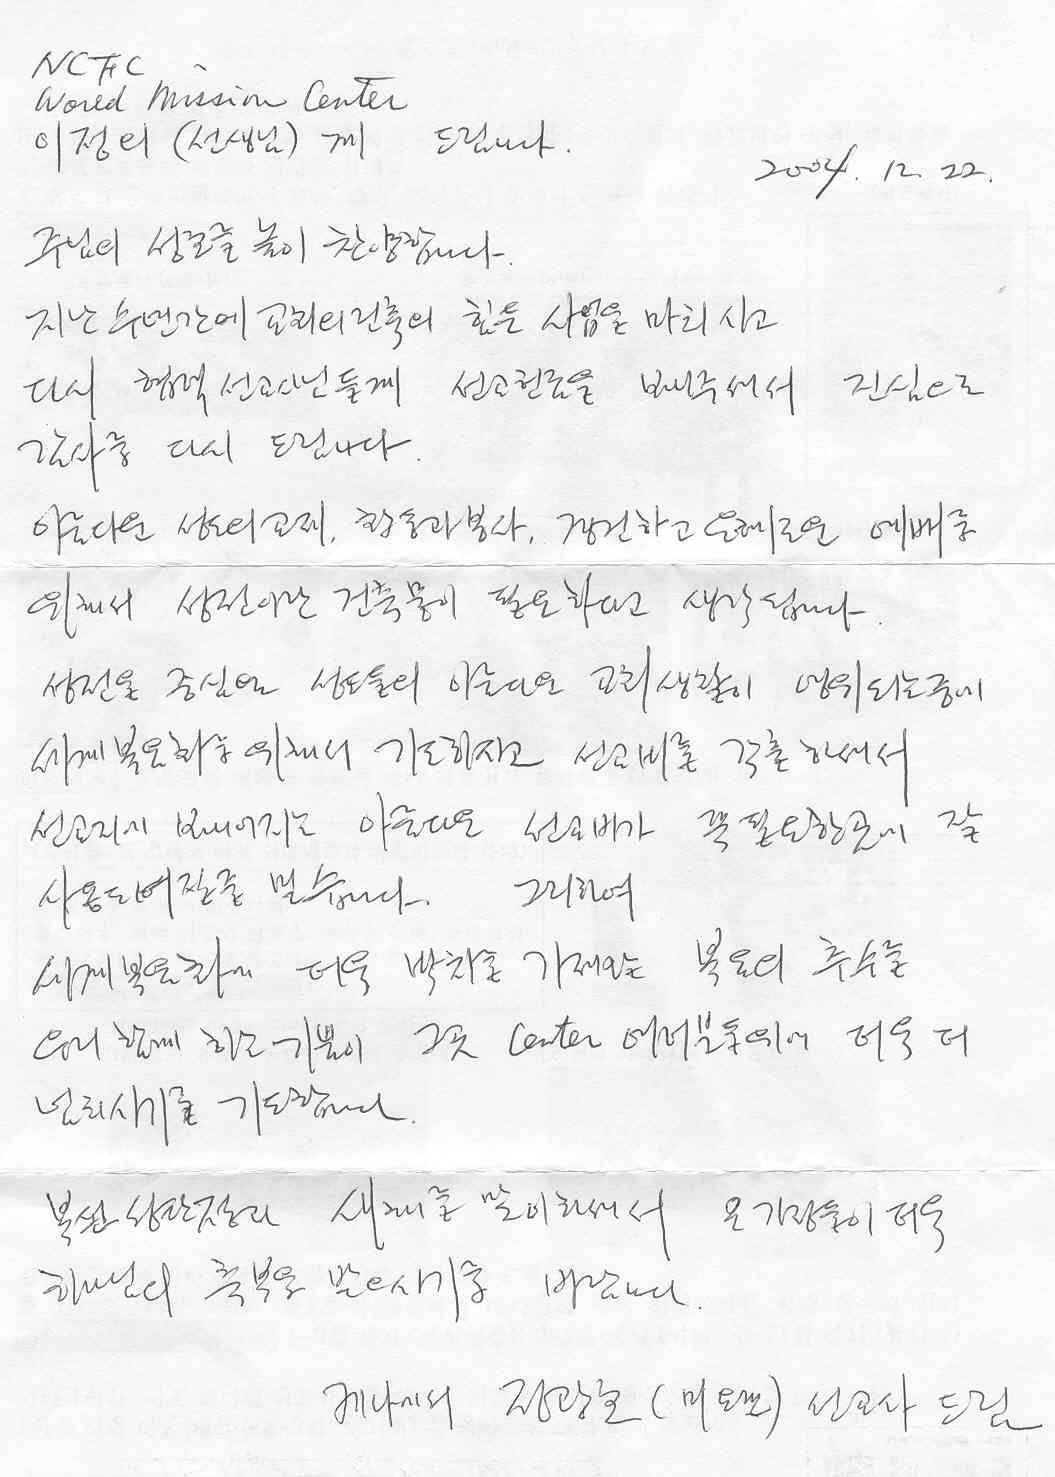 NCFC
World Mission Center
이정희 (선생님) 께 드립니다.
2004. 12. 22.
주님의 성호를 높이 찬양합니다.
지난 수년간에 교회의 건축의 힘든 사업을 마치시고
다시 협력 선교사님들께 선교헌금을 보내주셔서 진심으로
감사를 다시 드립니다.
아름다운 성도의 교제, 활동과 봉사, 경건하고 은혜로운 예배를
위해서 성전이란 건축물이 필요하다고 생각됩니다.
성전을 중심한 성도들의 아름다운 교회생활이 영위되는중에
세계복음화를 위해서 기도하시고 선교비를 각출하셔서
선교지에 보내어지는 아름다운 선교비가 꼭 필요한곳에 잘
사용되어질줄 믿습니다. 그리하여
세계복음화에 더욱 박차를 가져오는 복음의 추수를
우리 함께 하는 기쁨이 그곳 Center 여러분들위에 더욱 더
넘치시기를 기도합니다.
복된 성탄절과 새해를 맞이하셔서 온 가정들이 더욱
하나님의 축복을 받으시기를 바랍니다.
케냐에서 장광호 ( ) 선교사 드림